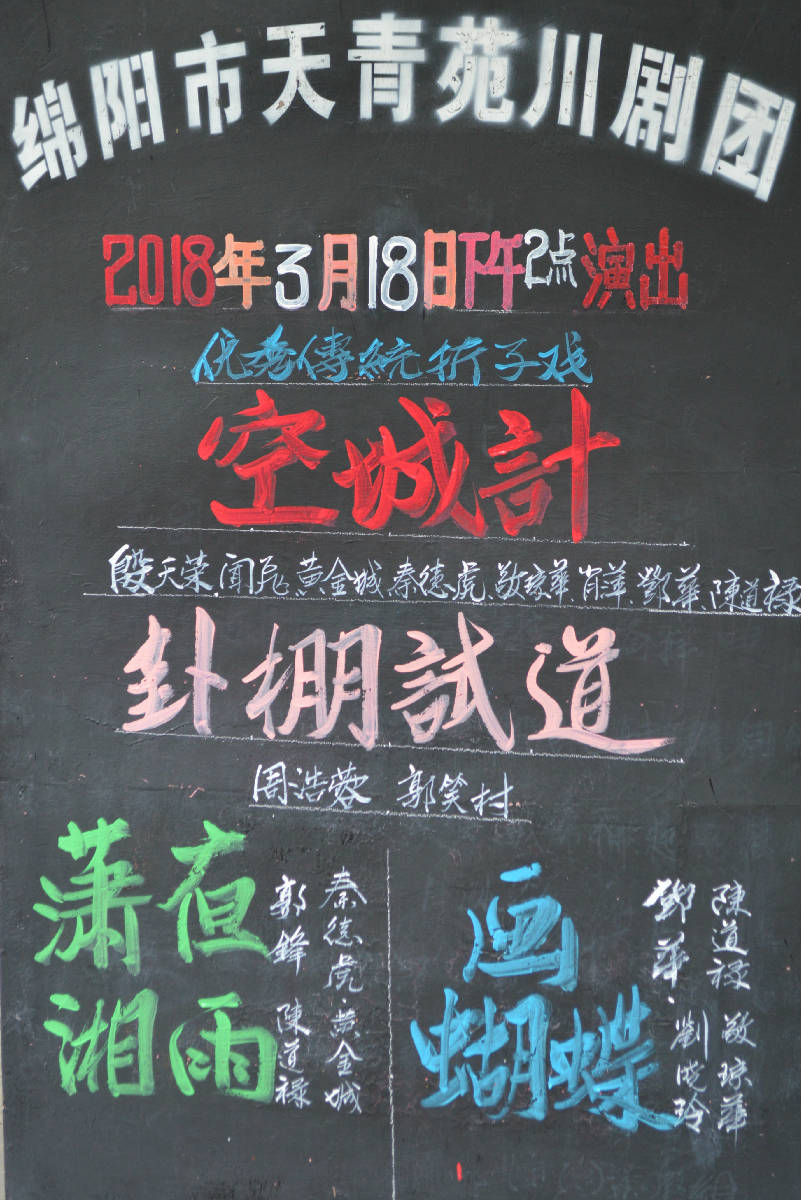 绵阳市天青苑川剧团
2018年3月18日下午2点演出
优秀傳統折子戏
空城計
殷天荣.闻飞.黄金城.秦德虎.敬琼华.肖苹.鄧華.陳道禄
卦棚試道
周浩蓉 郭笑村
潇湘
夜雨
秦德虎·黄金城
郭鋒 陳道禄
画
蝴蝶
陳道禄 敬琼華
鄧華·劉晓玲